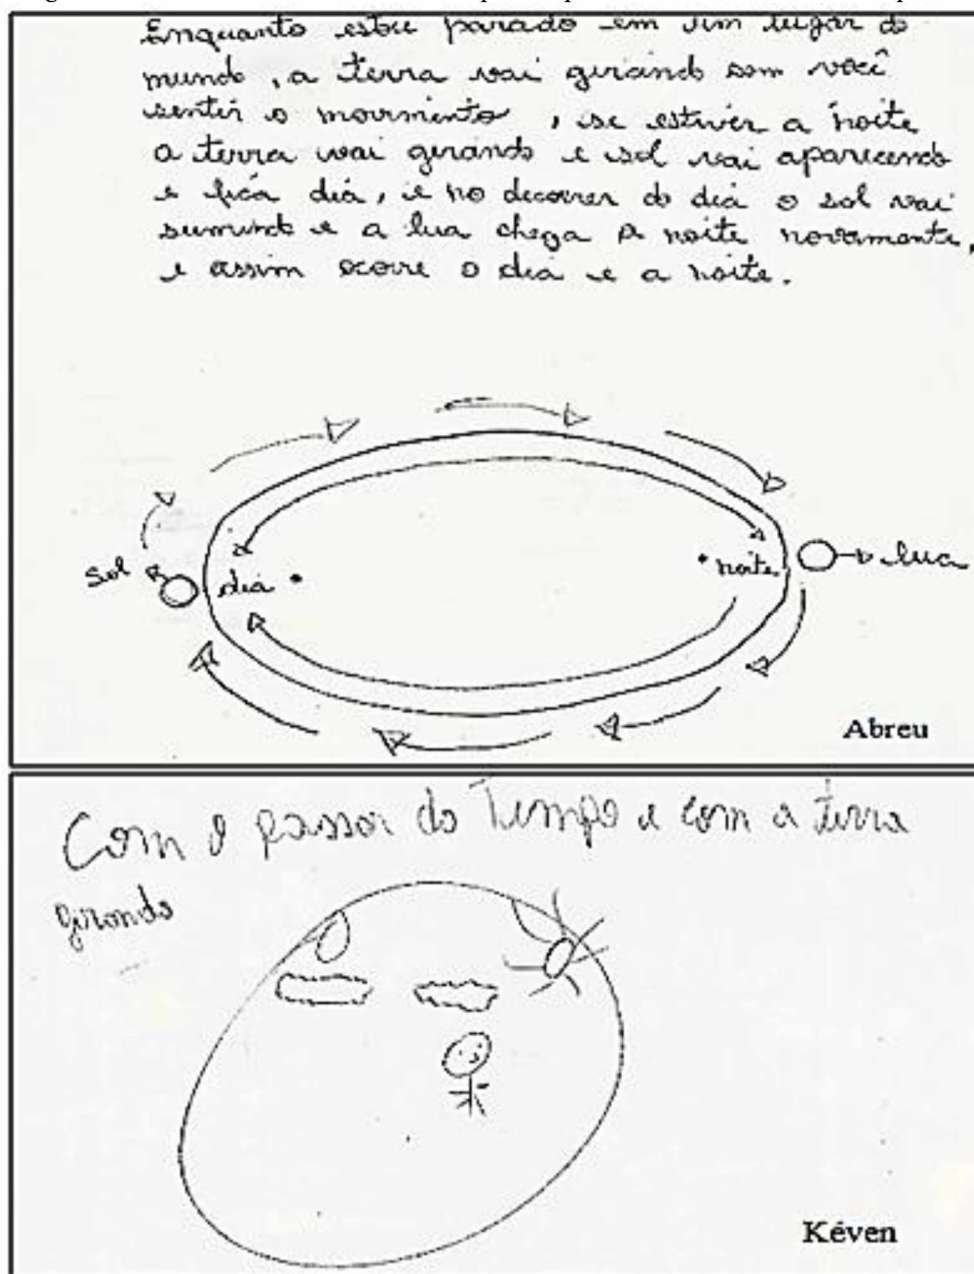 Enquanto estou parado em um lugar do
mundo, a terra vai girando sem você
sentir o movimento, se estiver a noite
a terra vai girando e sol vai aparecendo
e fica dia, e no decorrer do dia o sol vai
sumindo e a lua chega a noite novamente,
e assim ocorre o dia e a noite.
sol
dia
noite
lua
Abreu
Com o passar do tempo e com a terra
girando
Kéven